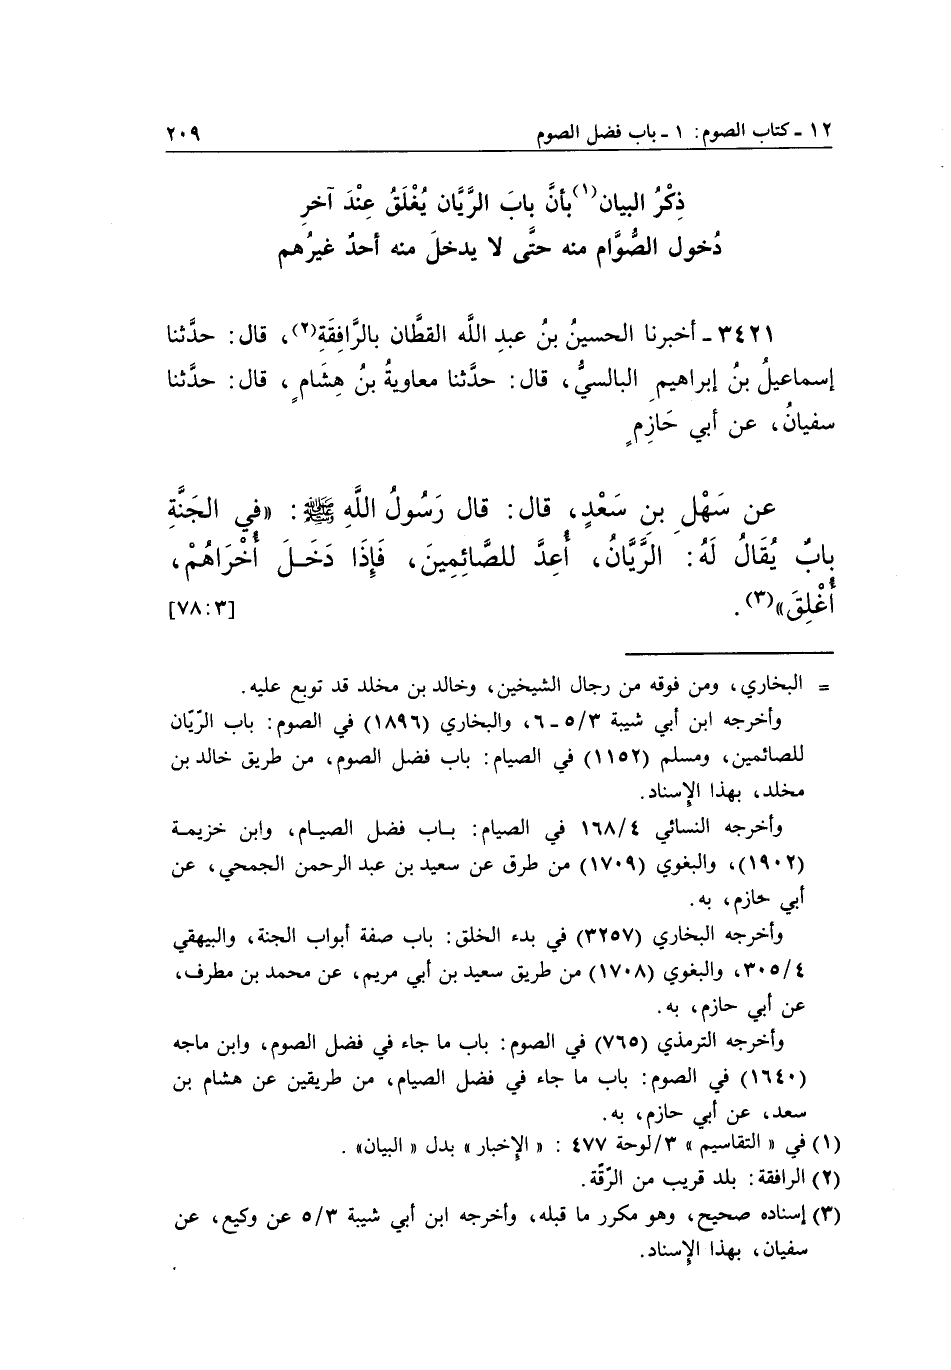 ١٢ ـ كتاب الصوم: ١ ـ باب فضل الصوم ٢٠٩
ذِكْرُ البيان(١) بأنَّ بابَ الرَّيَّان يُغْلَقُ عِنْدَ آخرِ
دُخول الصُّوَّام منه حتَّى لا يدخلَ منه أحدٌ غيرُهم
٣٤٢١ ـ أخبرنا الحسينُ بنُ عبدِ الله القطَّان بالرَّافِقَةِ(٢)، قال: حدَّثنا
إسماعيلُ بنُ إبراهيم البالسيُّ، قال: حدَّثنا معاويةُ بنُ هِشَامٍ، قال: حدَّثنا
سفيانُ، عن أبي حَازِمٍ
عن سَهْلِ بنِ سَعْدٍ، قال: قال رَسُولُ اللَّهِ ﷺ: «في الجَنَّةِ
بابٌ يُقَالُ لَهُ: الرَّيَّانُ، أُعِدَّ للصَّائِمِينَ، فَإِذَا دَخَلَ أُخْرَاهُمْ،
أُغْلِقَ»(٣). [٣: ٧٨]
= البخاري، ومن فوقه من رجال الشيخين، وخالد بن مخلد قد توبع عليه.
وأخرجه ابن أبي شيبة ٥/٣ ـ ٦، والبخاري (١٨٩٦) في الصوم: باب الرّيّان
للصائمين، ومسلم (١١٥٢) في الصيام: باب فضل الصوم، من طريق خالد بن
مخلد، بهذا الإسناد.
وأخرجه النسائي ١٦٨/٤ في الصيام: باب فضل الصيام، وابن خزيمة
(١٩٠٢)، والبغوي (١٧٠٩) من طرق عن سعيد بن عبد الرحمن الجمحي، عن
أبي حازم، به.
وأخرجه البخاري (٣٢٥٧) في بدء الخلق: باب صفة أبواب الجنة، والبيهقي
٣٠٥/٤، والبغوي (١٧٠٨) من طريق سعيد بن أبي مريم، عن محمد بن مطرف،
عن أبي حازم، به.
وأخرجه الترمذي (٧٦٥) في الصوم: باب ما جاء في فضل الصوم، وابن ماجه
(١٦٤٠) في الصوم: باب ما جاء في فضل الصيام، من طريقين عن هشام بن
سعد، عن أبي حازم، به.
(١) في «التقاسيم» ٣/لوحة ٤٧٧ : «الإخبار» بدل «البيان».
(٢) الرافقة: بلد قريب من الرّقّة.
(٣) إسناده صحيح، وهو مكرر ما قبله، وأخرجه ابن أبي شيبة ٥/٣ عن وكيع، عن
سفيان، بهذا الإسناد.